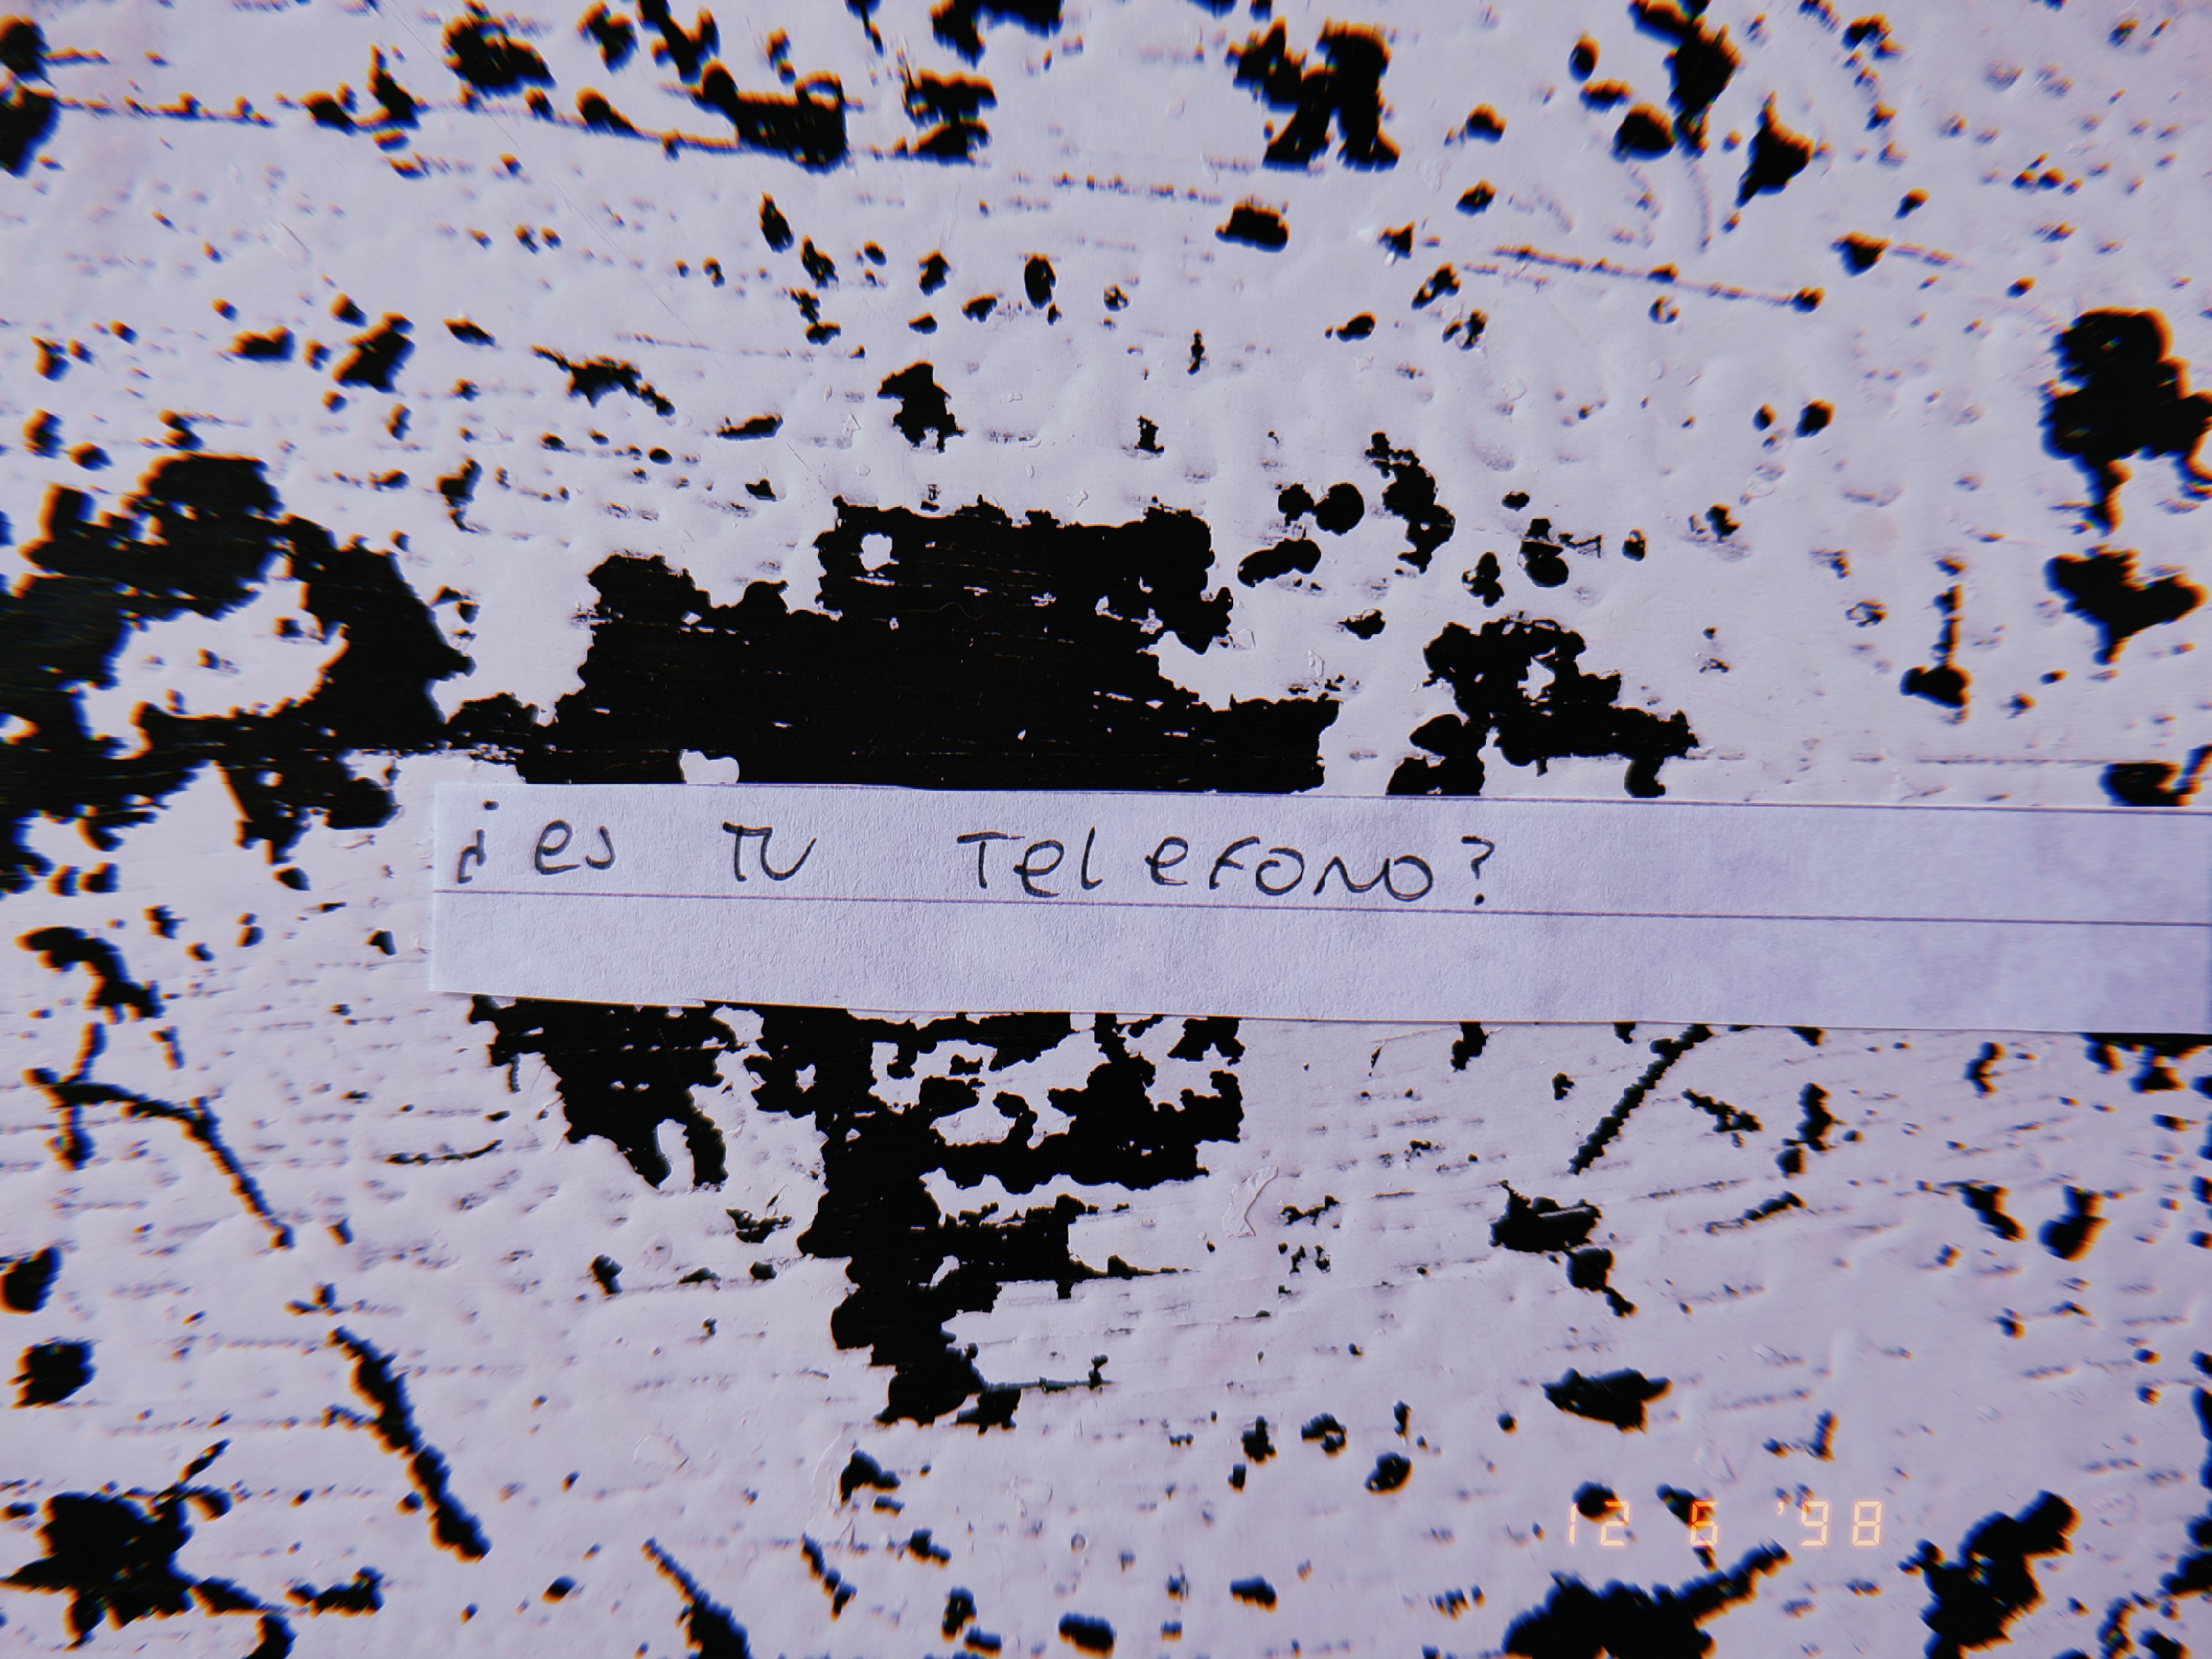 ¿es tu telefono?
12 6 '98